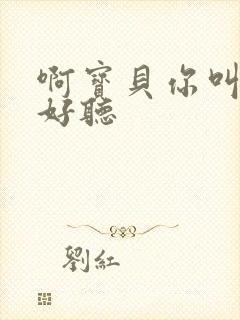 啊寶貝你叫
好聽
劉紅